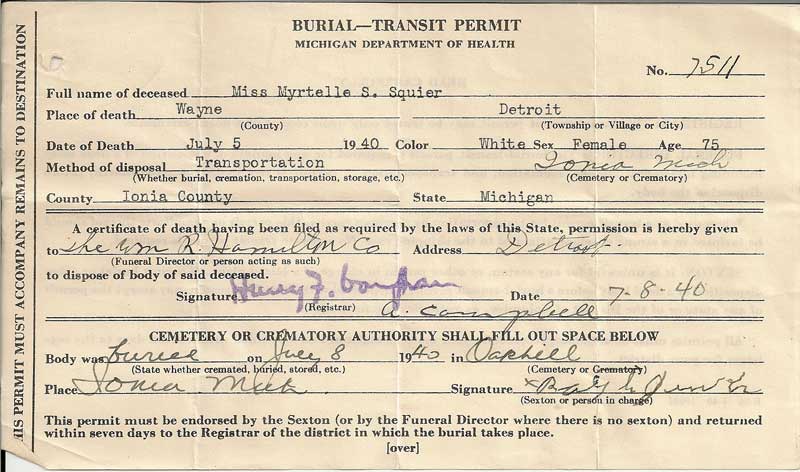 BURIAL—TRANSIT PERMIT
MICHIGAN DEPARTMENT OF HEALTH
No. 7511
Full name of deceased Miss Myrtelle S. Squier
Place of death Wayne Detroit
(County) (Township or Village or City)
Date of Death July 5 1940 Color White Sex Female Age 75
Method of disposal Transportation Ionia Mich
(Whether burial, cremation, transportation, storage, etc.) (Cemetery or Crematory)
County Ionia County State Michigan
A certificate of death having been filed as required by the laws of this State, permission is hereby given
to The Wm R. Hamilton Co Address Detroit.
(Funeral Director or person acting as such)
to dispose of body of said deceased.
Signature Henry F. Vaughan Date 7-8-40
(Registrar) A. Campbell
CEMETERY OR CREMATORY AUTHORITY SHALL FILL OUT SPACE BELOW
Body was buried on July 8 1940 in Oakhill
(State whether cremated, buried, stored, etc.) (Cemetery or Crematory)
Place Ionia Mich Signature
(Sexton or person in charge)
This permit must be endorsed by the Sexton (or by the Funeral Director where there is no sexton) and returned
within seven days to the Registrar of the district in which the burial takes place.
[over]
HIS PERMIT MUST ACCOMPANY REMAINS TO DESTINATION